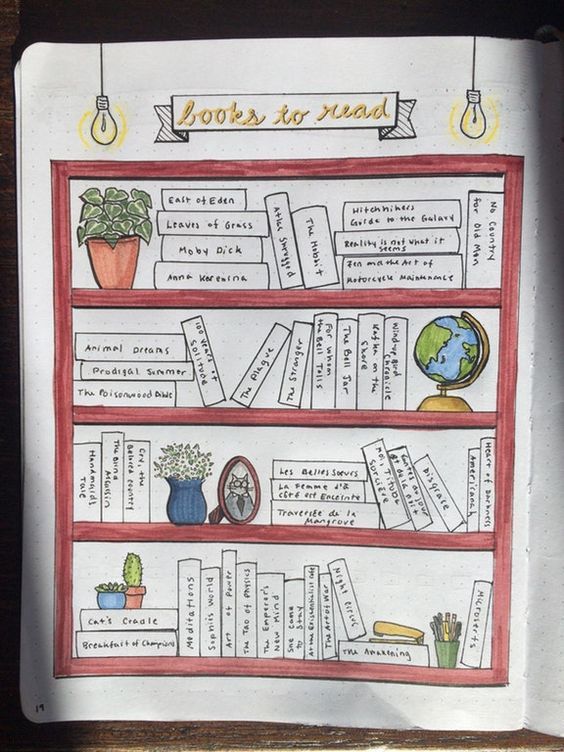 books to read
East of Eden
Leaves of Grass
Moby Dick
Anna Karenina
Atlas Shrugged
The Hobbit
Hitchhikers
Guide to the Galaxy
Reality is not what it
seems
Zen and the Art of
Motorcycle Maintenance
No Country
for Old Men
Animal Dreams
Prodigal Summer
The Poisonwood Bible
100 years of
Solitude
The Plague
The Stranger
For Whom
the Bell Tolls
The Bell Jar
Kafka on the
Shore
Wind-up Bird
Chronicle
Handmaids
Tale
The Blind
Assassin
Cry, the
Beloved country
Les Belles Sœurs
La Femme d'à
côté est Enceinte
Traversée de la
Mangrove
Moi, Tituba
Sorcière
Contes du jour
et de la nuit
Disgrace
Americanah
Heart of Darkness
Cat's Cradle
Breakfast of Champions
Meditations
Sophie's World
Art of Power
The Tao of Physics
The Emperor's
New Mind
She Came
to Stay
At the Existentialist Café
The Art of War
Night Circus
The Awakening
Microserfs
19